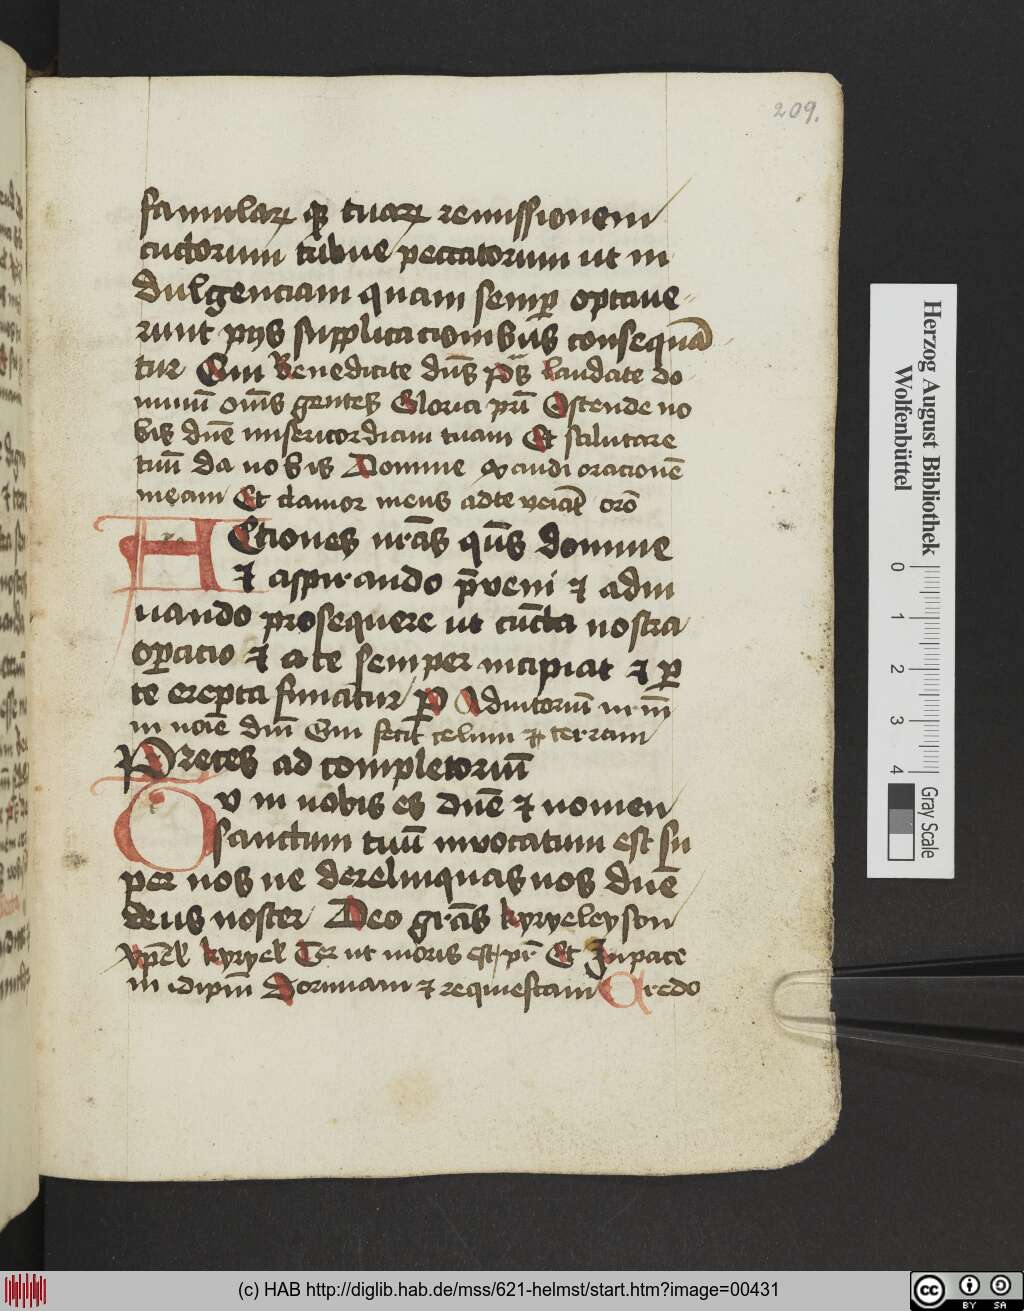 209.
famularꝝ qꝫ tuarꝝ remissionem
cūctorum tribue peccatorum ut in
dulgenciam quam semꝑ optaue
runt pijs supplicacionibus consequā
tur Qui Benedicite dn̄s pꝰ laudate do
minū om̄s gentes Gloria pr̄i Ostende no
bis dn̄e misericordiam tuam Et salutare
tuū da nobis Domine exaudi oracionē
meam Et clamor meus ad te veiāt orō
Actiones nr̄as qs̄ domine
⁊ aspirando p̄veni ⁊ adiu
uando prosequere ut cūcta nostra
oꝑacio ⁊ a te semper incipiat ⁊ ꝑ
te cepta finiatur ꝑ Adiutoriū nr̄m
in noīe dn̄i Qui fecit celum ⁊ terram
Preces ad completoriū
Tu in nobis es dn̄e ⁊ nomen
sanctum tuū inuocatum est su
per nos ne derelinquas nos dn̄e
deus noster Deo gr̄as kyryeleyson
xp̄el̄ kyryel̄ Ter ut moris est pr̄ Et In pace
in idip̄m Dormiam ⁊ requiescam Credo
Herzog August Bibliothek
Wolfenbüttel
0 1 2 3 4
Gray Scale
(c) HAB http://diglib.hab.de/mss/621-helmst/start.htm?image=00431
cc BY SA